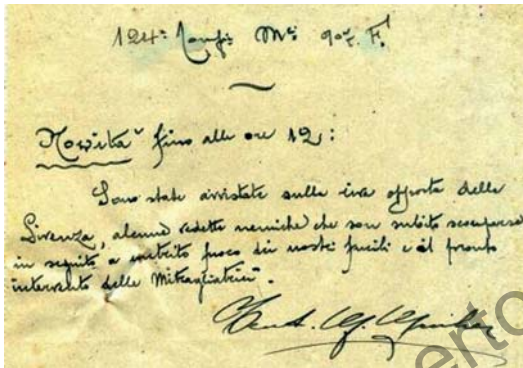 124ª Compª Mtr 907. F.
Novità fino alle ore 12:
Sono state avvistate sulla riva opposta della
Livenza, alcune vedette nemiche che son subito scomparse
in seguito a nutrito fuoco dei nostri fucili e il pronto
intervento delle Mitragliatrici.